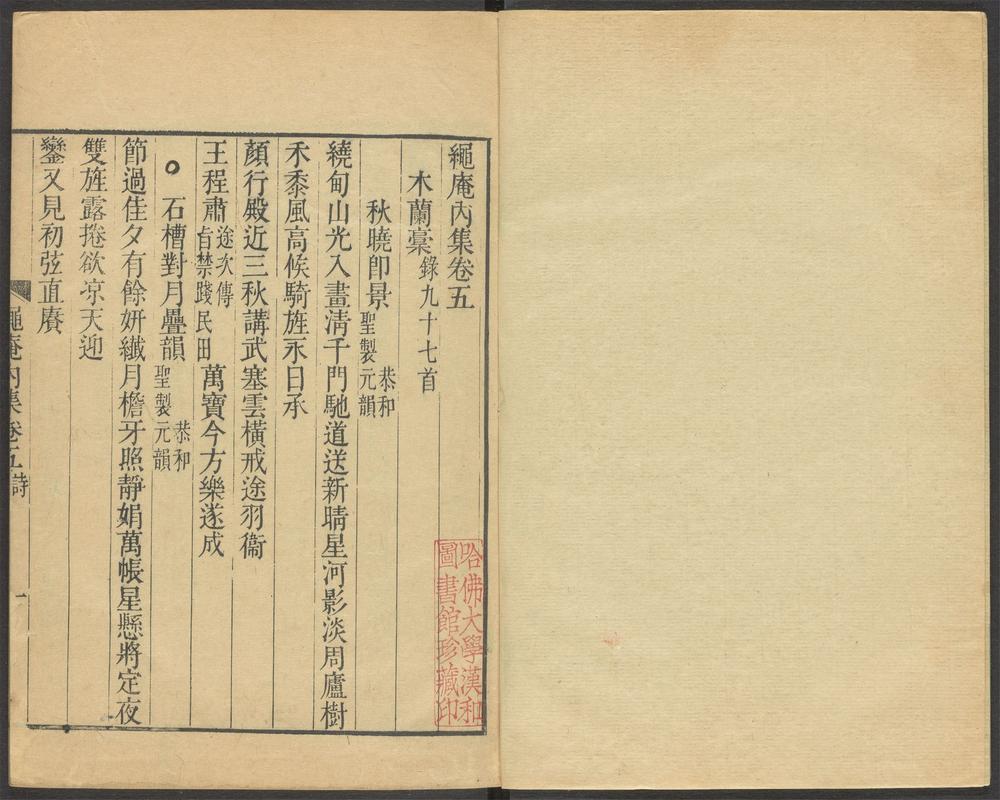 繩庵內集卷五
木蘭稾錄九十七首
秋曉卽景恭和聖製元韻
繞甸山光入畫清千門馳道送新晴星河影淡周廬樹
禾黍風高候騎旌永日承
顏行殿近三秋講武塞雲橫戒途羽衞
王程肅途次傳旨禁踐民田萬寶今方樂遂成
石槽對月疊韻恭和聖製元韻
節過佳夕有餘妍纖月檐牙照靜娟萬帳星懸將定夜
雙旌露捲欲凉天迎
鑾又見初弦直賡
繩庵內集卷五詩
一
哈佛大學漢和
圖書館珍藏印